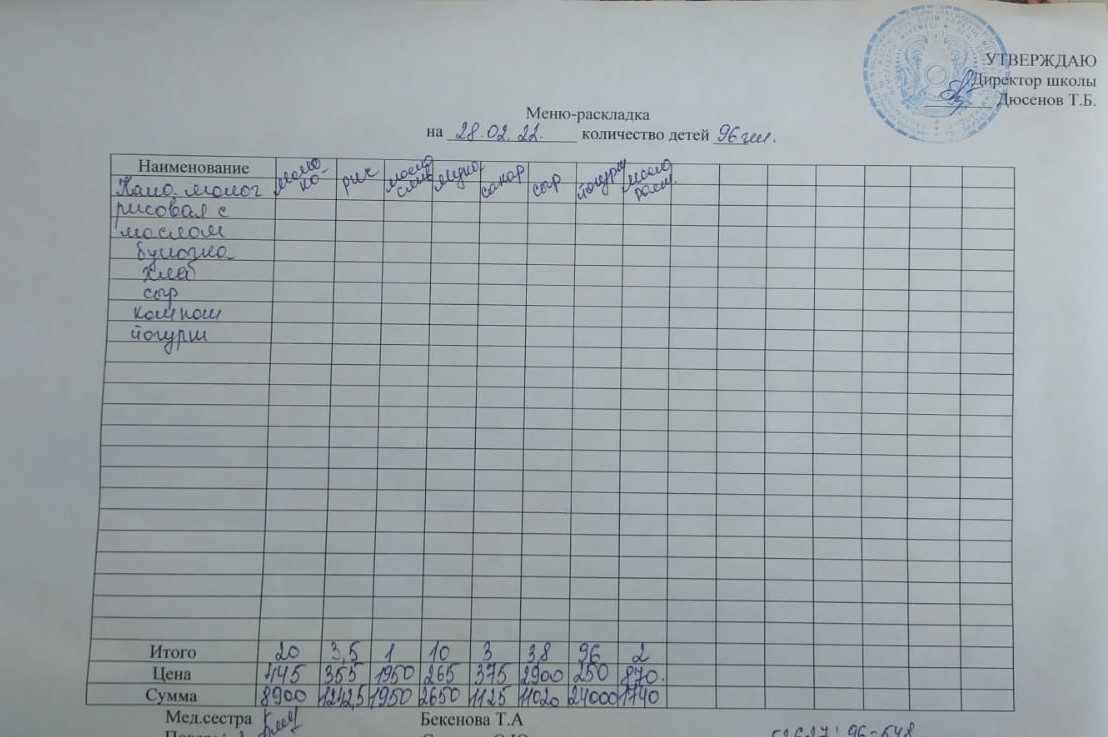 УТВЕРЖДАЮ
Директор школы
Дюсенов Т.Б.
Меню-раскладка
на 28.02.22. количество детей 96 чел.
Наименование молоко- рис масло слив мука сахар сыр йогурт масло раст.
Каша молоч
рисовая с
маслом
булочка
хлеб
сыр
компот
йогурт
Итого 20 3,5 1 10 3 3,8 96 2
Цена 445 355 1950 265 375 2900 250 870.
Сумма 8900 1242,5 1950 2650 1125 11020 24000 1740
Мед.сестра Бекенова Т.А
52627:96-548